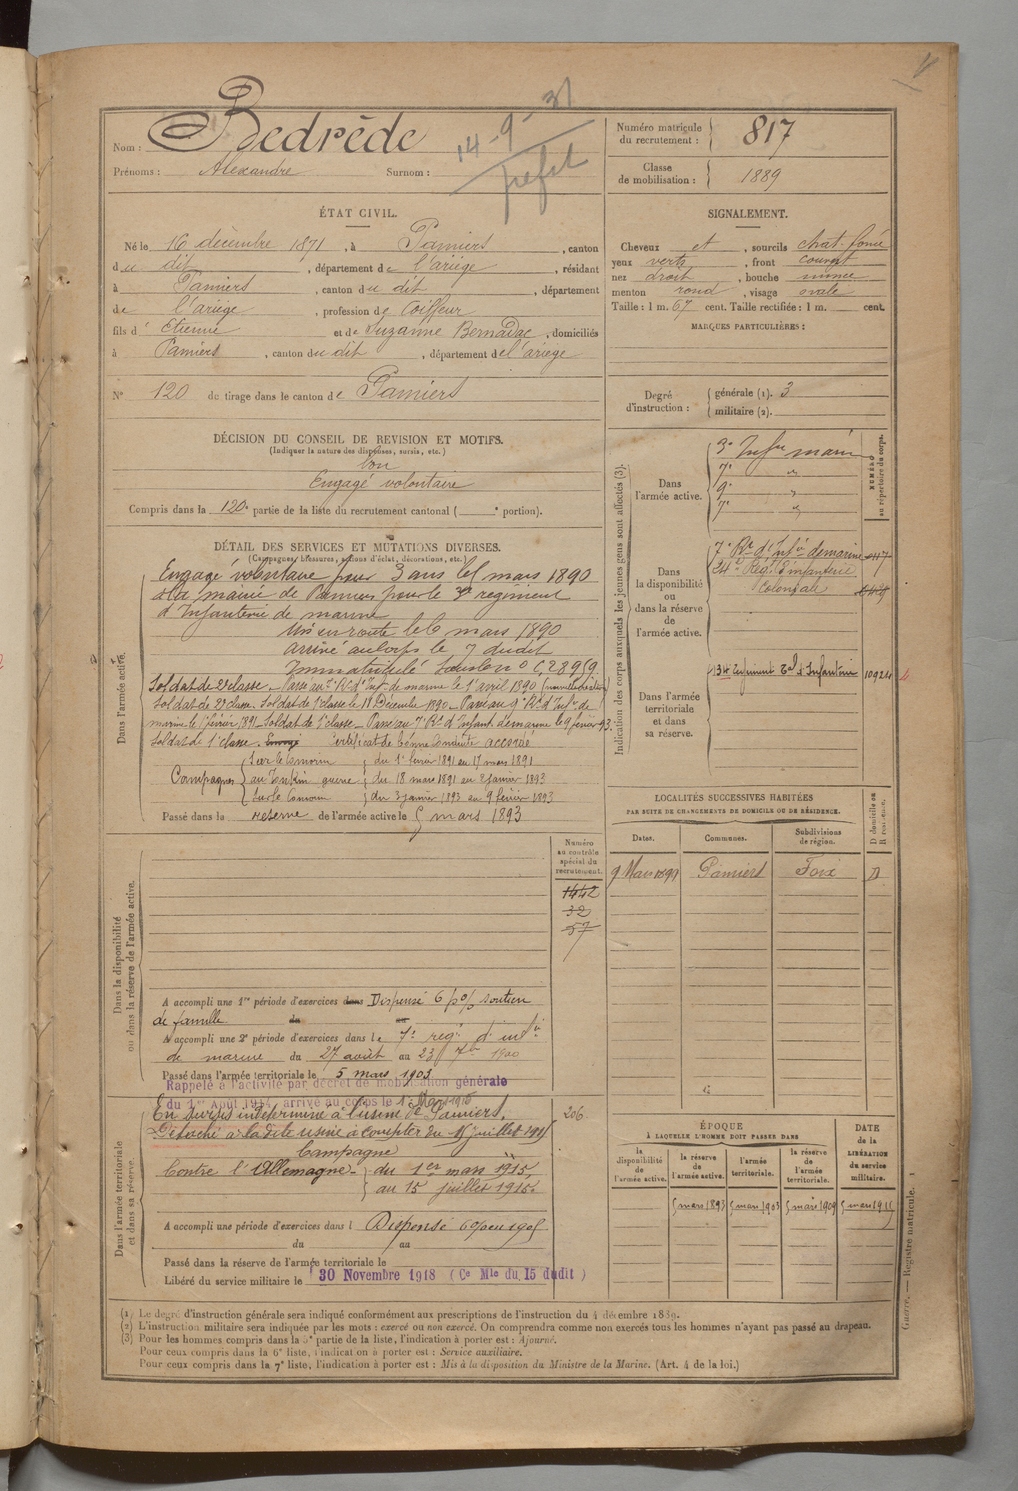 14-9-31
préfet
Nom : Bedrède
Prénoms : Alexandre Surnom :
Numéro matricule du recrutement : 817
Classe de mobilisation : 1889
ÉTAT CIVIL.
Né le 16 décembre 1871, à Pamiers, canton
du dit, département de l'ariège, résidant
à Pamiers, canton du dit, département
de l'ariège, profession de Coiffeur
fils d' Etienne et de Suzanne Bernadac, domiciliés
à Pamiers, canton du dit, département de l'ariège
N° 120 de tirage dans le canton de Pamiers
SIGNALEMENT.
Cheveux et, sourcils chat. foncé
yeux verts, front couvert
nez droit, bouche moyenne
menton rond, visage ovale
Taille : 1 m. 67 cent. Taille rectifiée : 1 m. cent.
MARQUES PARTICULIÈRES :
Degré d'instruction : générale (1). 3
militaire (2).
DÉCISION DU CONSEIL DE REVISION ET MOTIFS.
(Indiquer la nature des dispenses, sursis, etc.)
bon
Engagé volontaire
Compris dans la 120e partie de la liste du recrutement cantonal ( e portion).
DÉTAIL DES SERVICES ET MUTATIONS DIVERSES.
(Campagnes, blessures, actions d'éclat, décorations, etc.)
Dans l'armée active.
Engagé volontaire pour 3 ans le 5 mars 1890
à la mairie de Pamiers pour le 3e régiment
d'Infanterie de marine
Mis en route le 6 mars 1890
arrivé au corps le 7 dudit
Immatriculé sous le n°
Soldat de 2e classe. Passé au 7e Rt d'Infie de marine le 1er avril 1890
Soldat de 2e classe. Soldat de 1e classe le 11 Décembre 1890. Passé au 9e Rt d'Infie de
marine le 1er février 1891. Soldat de 1e classe. Passé au 7e Rt d'Infant. de marine le 9 février 93.
Soldat de 1e classe. Envoyé Certificat de bonne conduite accordé
Campagnes
du 1er février 1891 au 17 mars 1891
au Tonkin guerre du 18 mars 1891 au 2 janvier 1893
du 3 janvier 1893 au 9 février 1893
Passé dans la réserve de l'armée active le 5 mars 1893
Indication des corps auxquels les jeunes gens sont affectés (3).
NUMÉRO au répertoire du corps.
Dans l'armée active.
3e Infie marin
7e "
9e "
7e "
Dans la disponibilité ou dans la réserve de l'armée active.
7e Rt d'Infie de marine
24e Régt d'infanterie
Coloniale
Dans l'armée territoriale et dans sa réserve.
134 Régiment Tal d'Infanterie 10924
LOCALITÉS SUCCESSIVES HABITÉES
PAR SUITE DE CHANGEMENTS DE DOMICILE OU DE RÉSIDENCE.
Dates. Communes. Subdivisions de région. D domicile ou R résidence.
Pamiers Foix D
Dans la disponibilité ou dans la réserve de l'armée active.
Numéro au contrôle spécial du recrutement.
1442
32
57
A accompli une 1re période d'exercices dans Dispensé 6 p% soutien
de famille du au
A accompli une 2e période d'exercices dans le 7e régt d'infie
de marine du 27 août au 23 7bre 1900
Passé dans l'armée territoriale le 5 mars 1903
Rappelé à l'activité par décret de mobilisation générale
du 1er Août 1914, arrivé au corps le 1er Mars 1915
Dans l'armée territoriale et dans sa réserve.
206
En sursis indéterminé à l'usine de Pamiers.
Détaché à la dite usine à compter du 15 juillet 1915
Campagne
Contre l'Allemagne du 1er mars 1915
au 15 juillet 1915.
A accompli une période d'exercices dans l Dispensé 6% en 1905
du au
Passé dans la réserve de l'armée territoriale le
Libéré du service militaire le 30 Novembre 1918 (Ce Mle du 15 dudit)
ÉPOQUE
À LAQUELLE L'HOMME DOIT PASSER DANS
la disponibilité de l'armée active. la réserve de l'armée active. l'armée territoriale. la réserve de l'armée territoriale.
DATE de la LIBÉRATION du service militaire.
5 mars 1893 5 mars 1903 5 mars 1909 5 mars 1915
(1) Le degré d'instruction générale sera indiqué conformément aux prescriptions de l'instruction du 4 décembre 1889.
(2) L'instruction militaire sera indiquée par les mots : exercé ou non exercé. On comprendra comme non exercés tous les hommes n'ayant pas passé au drapeau.
(3) Pour les hommes compris dans la 5e partie de la liste, l'indication à porter est : Ajourné.
Pour ceux compris dans la 6e liste, l'indication à porter est : Service auxiliaire.
Pour ceux compris dans la 7e liste, l'indication à porter est : Mis à la disposition du Ministre de la Marine. (Art. 4 de la loi.)
Guerre. — Registre matricule. 1